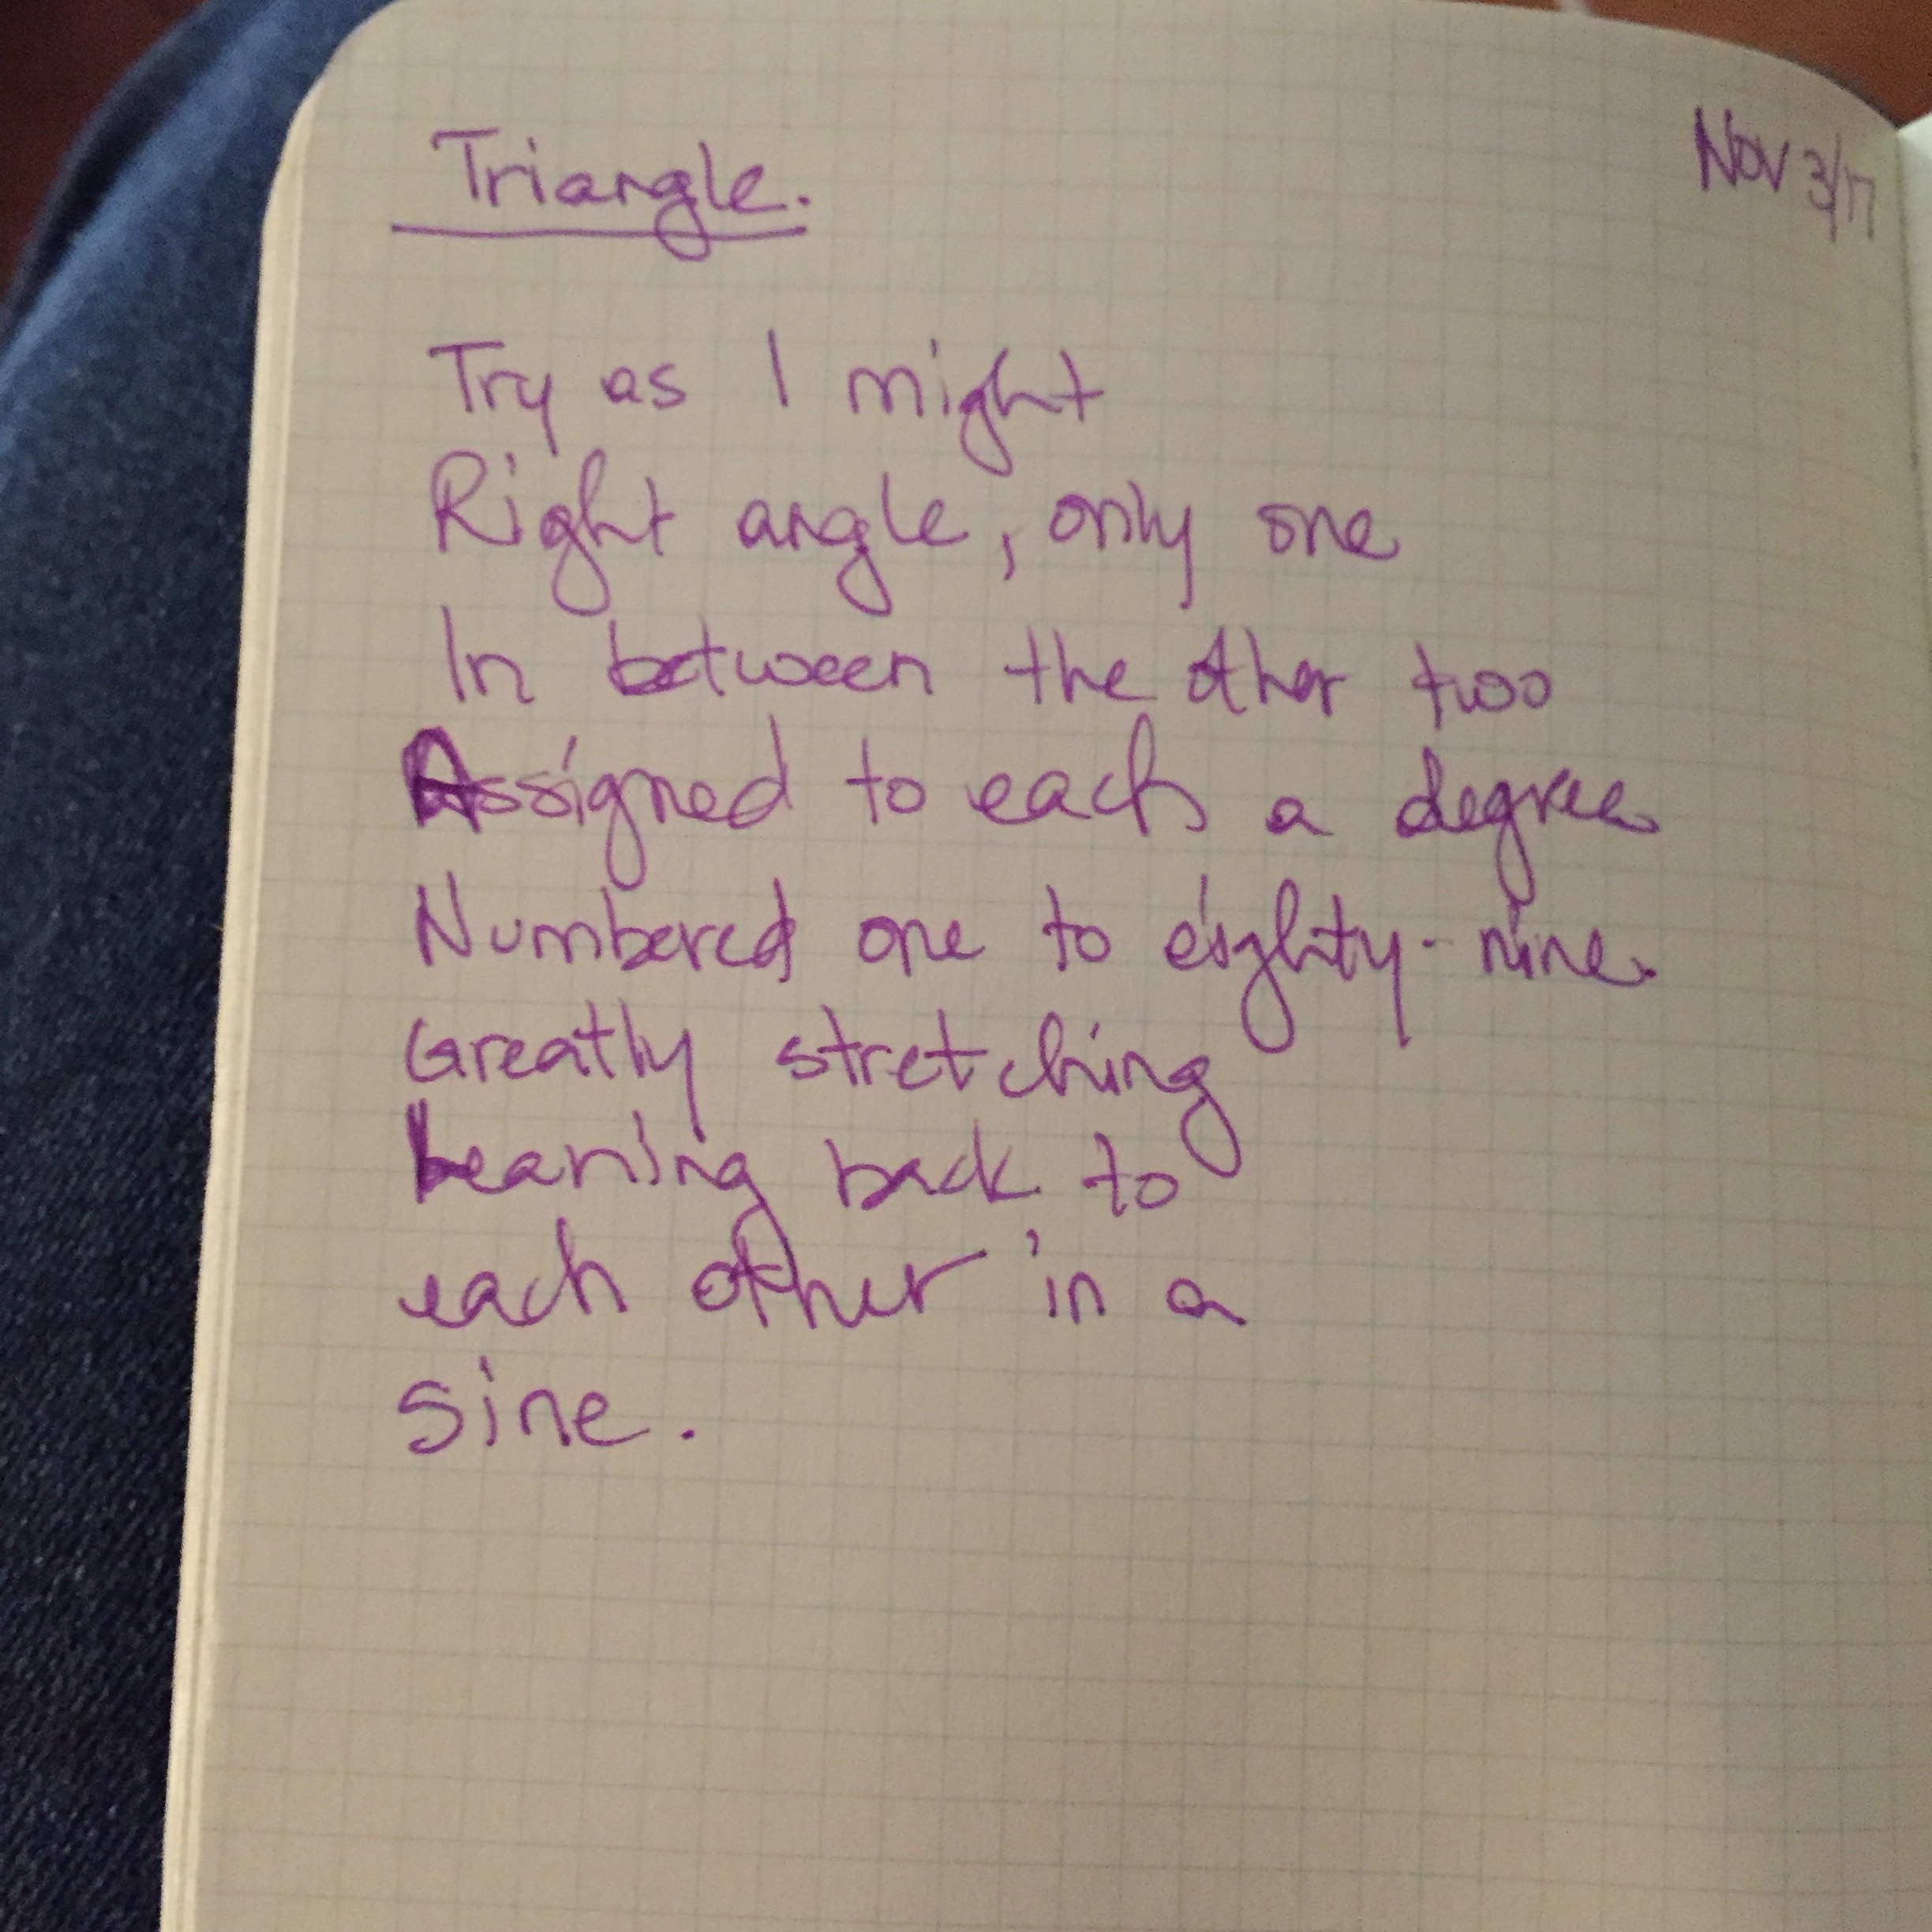 Triangle.
Nov 3/17
Try as I might
Right angle, only one
In between the other two
Assigned to each a degree
Numbered one to eighty-nine.
Greatly stretching
Leaning back to
each other in a
sine.